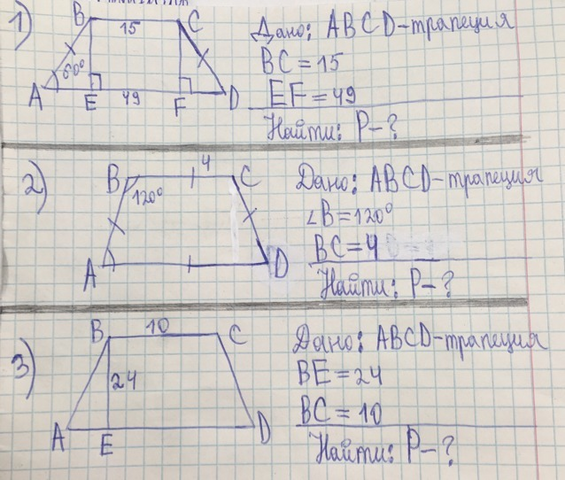 1)
B 15 C
60°
A E 49 F D
Дано: ABCD-трапеция
BC=15
EF=49
Найти: P-?
2)
B 4 C
120°
A D
Дано: ABCD-трапеция
∠B=120°
BC=4
Найти: P-?
3)
B 10 C
24
A E D
Дано: ABCD-трапеция
BE=24
BC=10
Найти: P-?